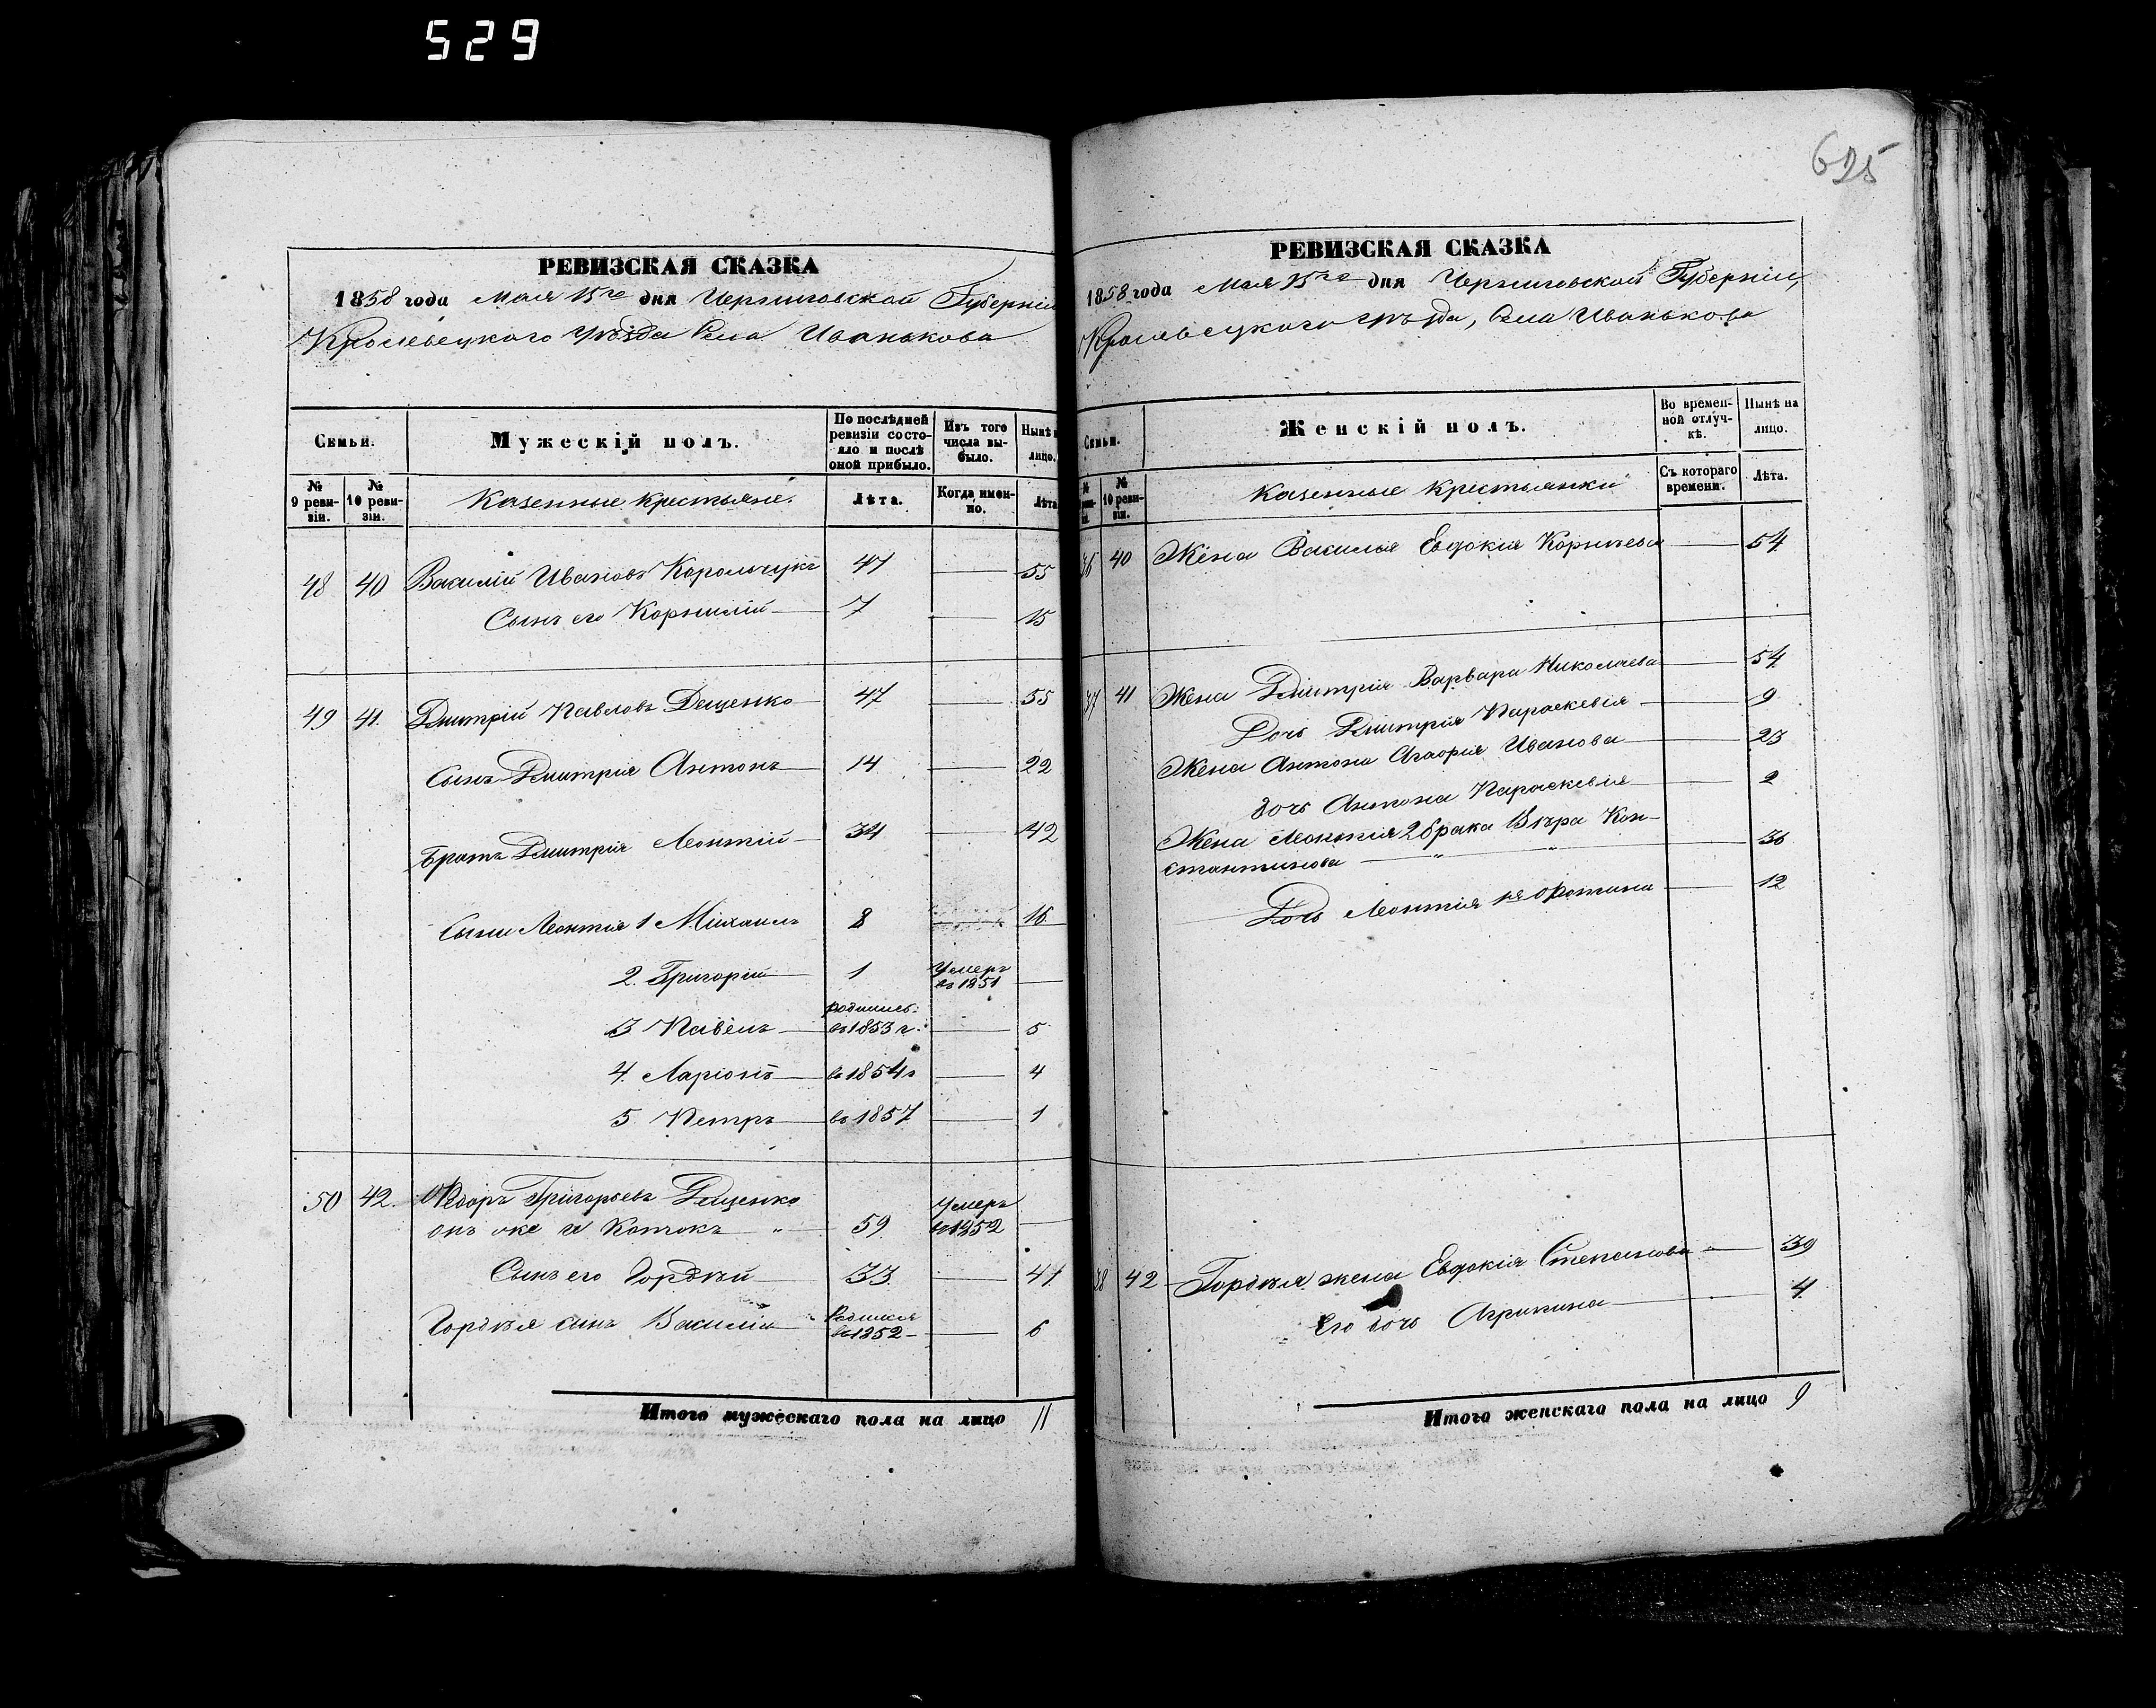 529
625
РЕВИЗСКАЯ СКАЗКА
1858 года Мая 15го дня Черниговской Губерніи
Кролевецкого Уѣзда Села Иванькова
Семьи.
Мужескій полъ.
По послѣдней ревизіи состояло и послѣ оной прибыло.
Изъ того числа выбыло.
Нынѣ
лицо.
№ 9 ревизіи.
№ 10 ревизіи.
Казенные крестьяне.
Лѣта.
Когда именно.
Лѣта
48 40 Василій Ивановъ Корольчукъ 47 — 55
Сынъ его Корнилій — 7 — 15
49 41. Дмитрій Павловъ Деценко 47 — 55
Сынъ Дмитрія Антонъ — 14 — 22
Братъ Дмитрія Леонтій — 34 — 42
Сыны Леонтія 1 Михаилъ 8 — 16
2. Григорій — 1 Умеръ въ 1851 —
3 Павелъ — родились: въ 1853 г. — 5
4. Ларіонъ — въ 1854 г — 4
5 Петръ — въ 1857 — 1
50 42. Федоръ Григорьевъ Деценко
онъ же и Котокъ „ — 59 Умеръ въ 1852 —
Сынъ его Гордѣй 33 — 41
Гордѣя сынъ Василій — Родился въ 1852 — — 6
Итого мужескаго пола на лицо 11
РЕВИЗСКАЯ СКАЗКА
1858 года Мая 15го дня Черниговской Губерніи,
Кролевецкого Уѣзда, Села Иванькова
Семьи.
Женскій полъ.
Во временной отлучкѣ.
Нынѣ на лицо.
№ 10 ревизіи.
Казенные крестьянки
Съ котораго времени.
Лѣта.
36 40 Жена Василья Евдокія Корнѣева — 54
37 41 Жена Дмитрія Варвара Николаева — 54
Дочь Дмитрія Параскевія — 9
Жена Антона Агафія Иванова — 23
дочь Антона Параскевія — 2
Жена Леонтія 2 брака Вѣра Кон-
стантинова — „ „ — 36
Дочь Леонтія 1я Фотина — 12
38 42 Гордѣя жена Евдокія Степанова — 39
Его дочь Агрипина — 4
Итого женскаго пола на лицо 9